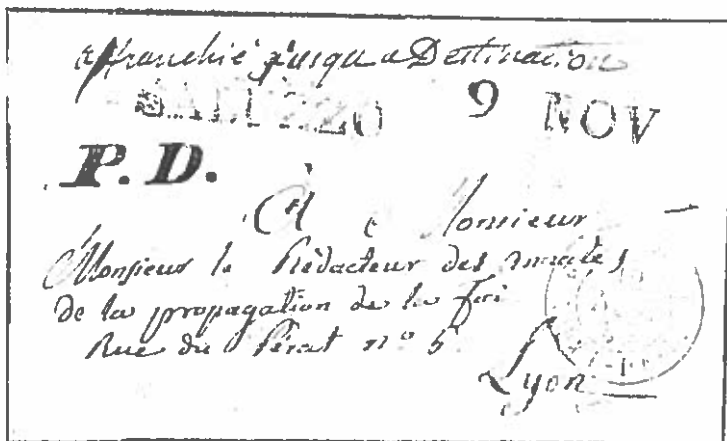 affranchié jusqu'a Destination
SALUZZO 9 NOV
P. D.
A Monsieur
Monsieur le Rédacteur des annales
de la propagation de la foi
Rue du Pérat nº 5
Lyon